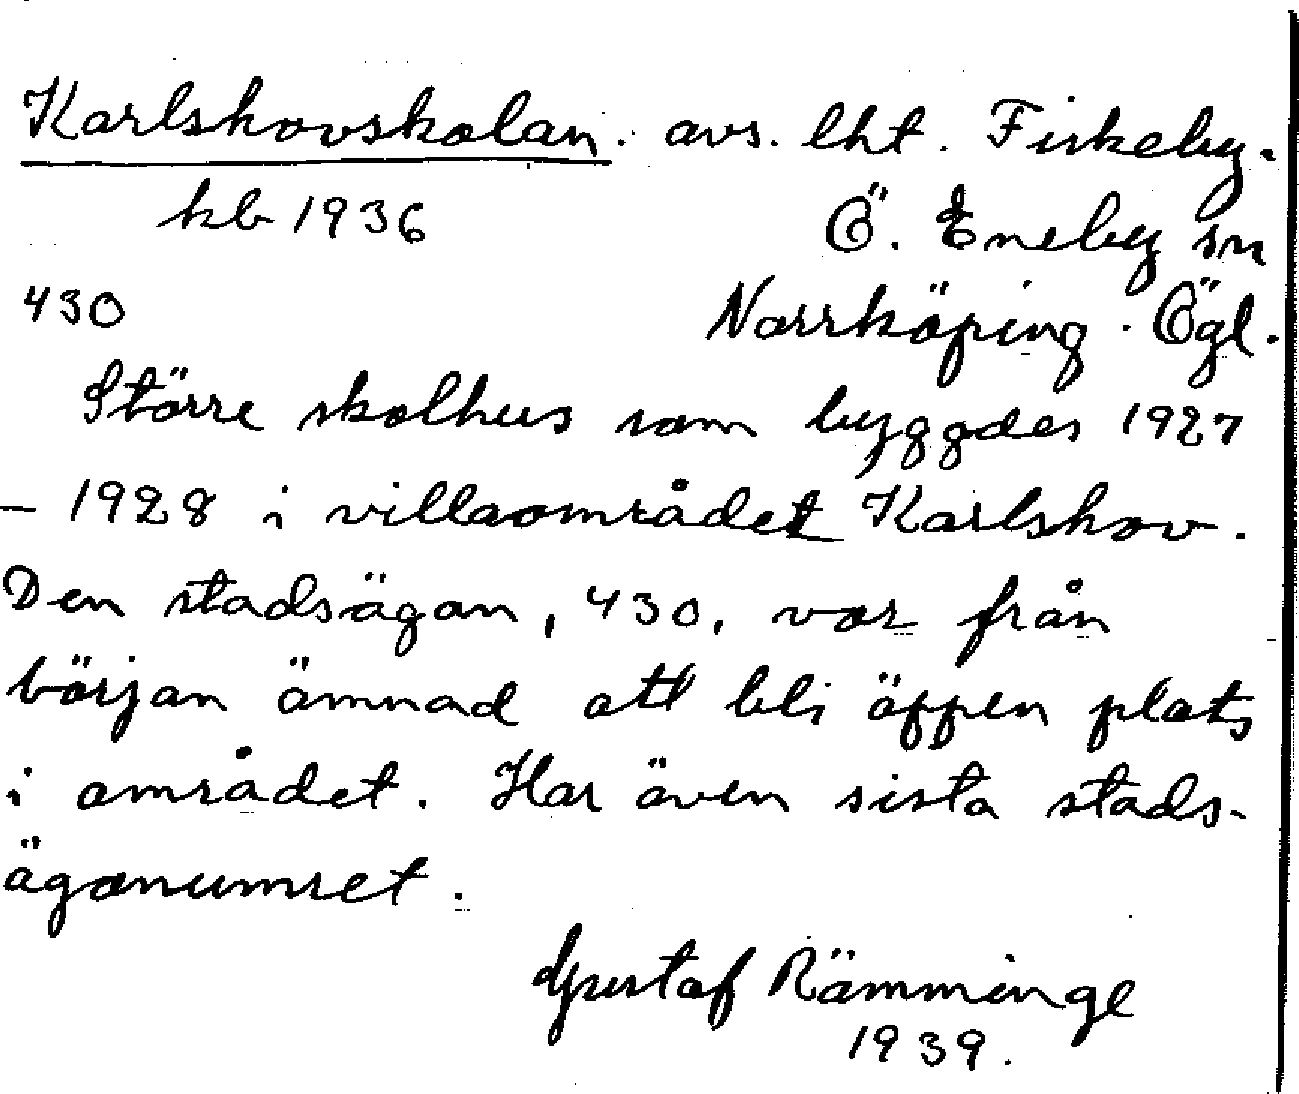 Karlshovskolan. avs. lht. Fiskeby.
kb 1936 Ö. Eneby sn
430 Norrköping. Ögl.
Större skolhus som byggdes 1927
- 1928 i villaområdet Karlshov.
Den stadsägan, 430, var från
början ämnad att bli öppen plats
i området. Har även sista stads-
äganumret.
Gustaf Rämminge
1939.